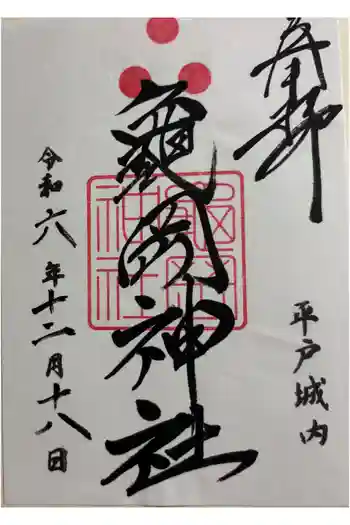 奉拝
平戸城内
亀岡神社
令和六年十二月十八日
亀岡神社